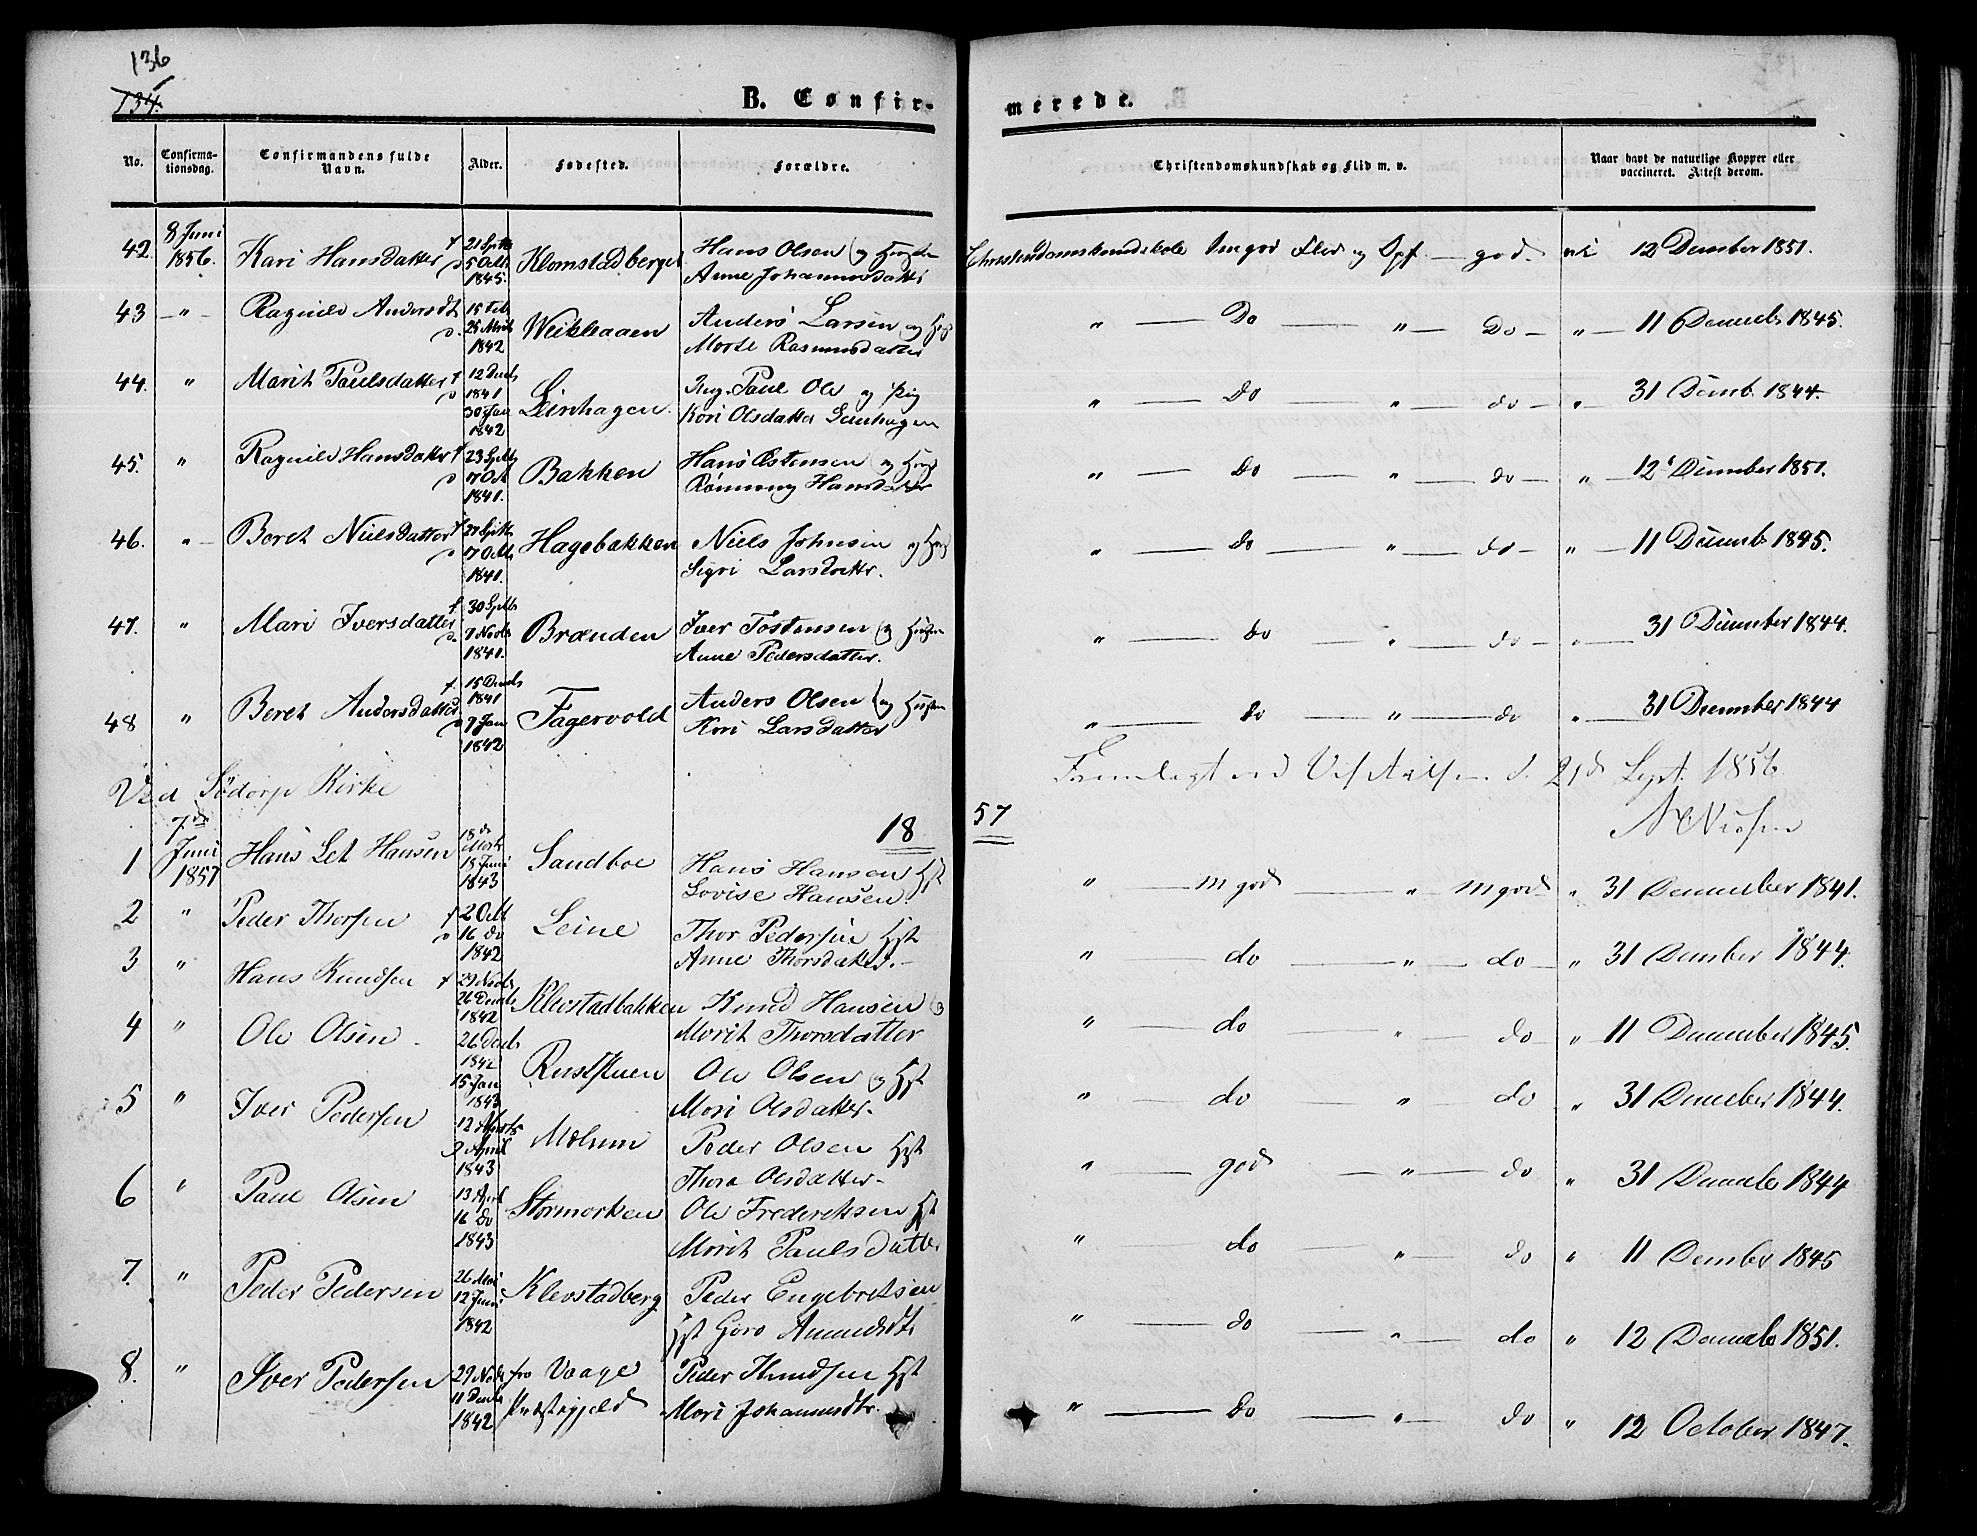 136
134.
B. Confirmerede.
No. Confirmationsdag. Confirmandens fulde Navn. Alder. Fødested. Forældre. Christendomskundskab og Flid m. v. Naar havt de naturlige Kopper eller vaccineret. Attest derom.
42. 8 Juni 1856. Kari Hansdatter 21 Septb 5 Octb 1845. Klomstadberget Hans Olsen og Hustru Anne Johannesdatter god 12 December 1851.
43 " Ragnild Andersdt 15 Feb 25 Marts 1842 Weikleaaen Anders Larsen og Marte Rasmusdatter " Do " Do " 11 Decemb 1845.
44. " Marit Paulsdatter 12 Decb 1841 30 Jan 1842 Leinhagen. Ung. Paul Ole og Pig Kari Olsdatter Leinhagen " do " do " 31 Decemb 1844.
45. " Ragnild Hansdatter 23 Septb 17 Oct 1841. Bakken Hans Østensen og Rønnaug Hansdatter " do " do " 12 December 1851.
46. " Beret Nielsdatter 27 Septb 17 Octb 1841. Hagebakken Niels Johnsen og Sigri Larsdatter. " do " do " 11 Decemb 1845.
47. " Mari Iversdatter 30 Septb 7 Novb 1841. Brænden Iver Tostensen og Hustru Anne Pedersdatter. " do " do " 31 December 1844.
48 " Beret Andersdatter 15 Decb 1841 7 Jan 1842 Fagervold Anders Olsen og Hustru Kari Larsdatter " do " do " 31 December 1844
Fremlagt ved Visitatsen d. 21de Sept. 1856
Ved Sødorp Kirke
1857
1 7de Juni 1857 Hans Let Hansen 18de Marts 18 Juni 1843 Sandboe Hans Hansen Hst Lovise Hansen. " M god " M god " 31 December 1841.
2 " Peder Thorsen 2 Octb 16 do 1842 Leine Thor Pedersen Hst Anne Thorsdatter. " do " do " 31 December 1844.
3 " Hans Knudsen 29 Novb 26 Decb 1842 Klevstadbakken Knud Hansen og Marit Thorsdatter " do " do " 11 December 1845.
4 " Ole Olsen 26 Decb 1842 15 Jan 1843 Ruststuen Ole Olsen og Hst Mari Olsdatter. " do " do " 31 December 1844.
5 " Iver Pedersen 12 Marts 9 April 1843 Moluum Peder Olsen Hst Thora Olsdatter. " god " do " 31 Decemb 1844
6 " Paul Olsen 16 do 1843 Stormorken Ole Frederiksen Hst Marit Paulsdatter " do " do " 11 December 1845
7. " Peder Pedersen 26 Mai 12 Juni 1842 Klevstadberg Peder Engebretsen Hst Goro Amundsdt. " do " do " 12 Decemb 1851.
8. " Iver Pedersen 29 Novb 11 Decb 1842 fra Vaage Præstegjeld Peder Knudsen Hst Mari Johannesdtr. " do " do " 12 October 1847.